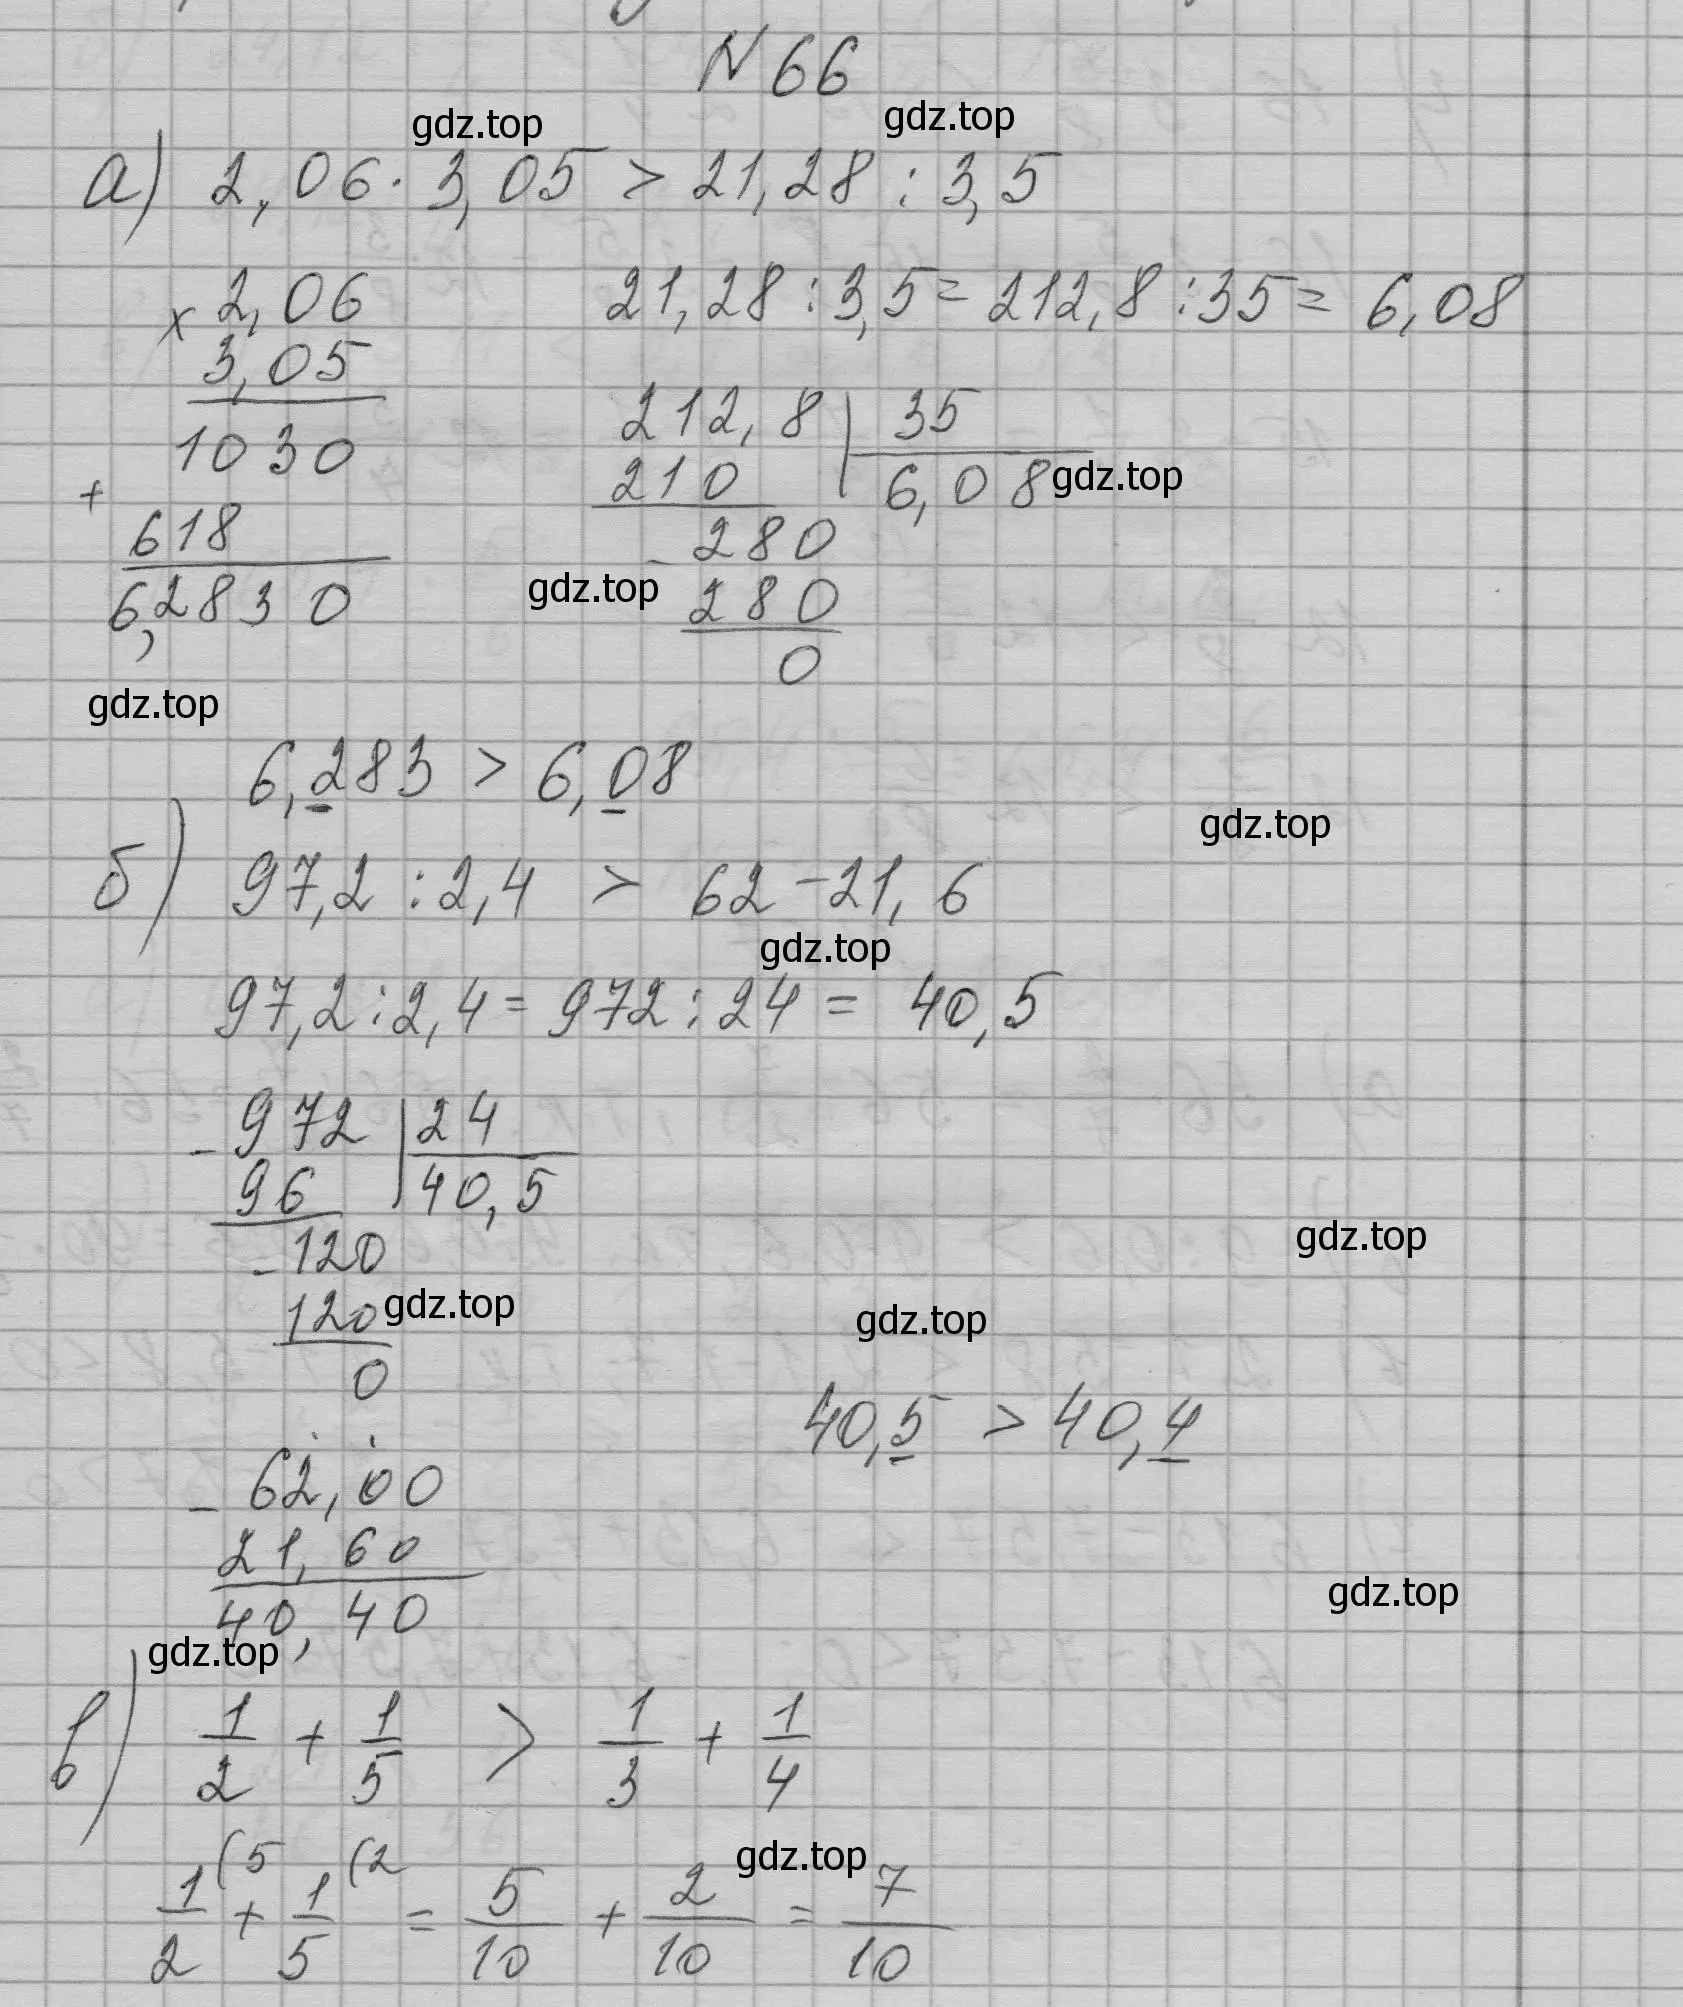 N 66
gdz.top gdz.top
а) 2,06 · 3,05 > 21,28 : 3,5
× 2,06
3,05
1030
+
618
6,2830
21,28 : 3,5 = 212,8 : 35 = 6,08
212,8 | 35
210 6,08 gdz.top
- 280
gdz.top 280
0
gdz.top
6,283 > 6,08
gdz.top
б) 97,2 : 2,4 > 62 - 21,6
gdz.top
97,2 : 2,4 = 972 : 24 = 40,5
- 972 | 24
96 40,5
- 120
gdz.top
120 gdz.top
0
gdz.top
40,5 > 40,4
- 62,00
21,60
40,40
gdz.top
gdz.top
в) 1/2 + 1/5 > 1/3 + 1/4
gdz.top
1/2 (5 + 1/5 (2 = 5/10 + 2/10 = 7/10